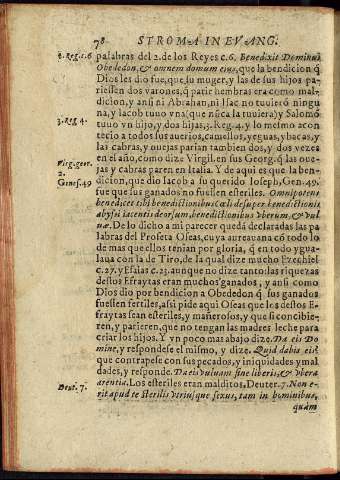 78 STROMA IN EVANG.
2. Reg. c. 6
palabras del 2. de los Reyes c. 6. Benedixit Dominus
Obededon, & omnem domum eius, que la bendicion q̃
Dios les dio fue, que su muger, y las de sus hijos pa-
riessen dos varones, q̃ parir hembras era como mal-
dicion, y ansi ni Abrahan, ni Isac no tuuierõ ningu
na, y Iacob tuuo vna (que nũca la tuuiera) y Salomõ
3. Reg. 4.
tuuo vn hijo, y dos hijas, 3. Reg. 4. y lo mesmo acon
tecio a todos sus auerios, camellos, yeguas, bacas, y
las cabras, y ouejas parian tambien dos, y dos vezes
en el año, como dize Virgil. en sus Georg. q̃ las oue-
Virg. geor.
2.
jas y cabras paren en Italia. Y de aqui es que la ben-
Genes. 49
dicion, que dio Iacob a su querido Ioseph, Gen. 49.
fue que sus ganados no fuessen esteriles. Omnipotens
benedicet tibi benedictionibus cœli desuper. benedictionis
abyssi iacentis deorsum, benedictionibus vberum, & vul
uæ. De lo dicho a mi parecer quedá declaradas las pa
labras del Profeta Oseas, cuya aureauana cõ todo lo
de mas que ellos tenian por gloria, q̃ en todo ygua-
laua con la de Tiro, de la qual dize mucho Ezechiel
c. 27. y Esaias c. 23. aunque no dize tanto: las riquezas
destos Efraytas eran muchos ganados, y ansi como
Dios dio por bendicion a Obededon q̃ sus ganados
fuessen fertiles, assi pide aqui Oseas que los destos E-
fraytas sean esteriles, y mañerolos, y que si concibie-
ren, y parieren, que no tengan las madres leche para
criar los hijos. Y vn poco mas abajo dize. Da eis Do
mine, y respondese el mismo, y dize. Quid dabis eis?
que contrapese con sus pecados, y iniquidades y mal
dades, y responde. Da eis vuluam sine liberis, & vbera
Deut. 7.
arentia. Los esteriles eran malditos, Deuter. 7. Non e-
rit apud te sterilis vtriusque sexus, tam in hominibus,
quàm